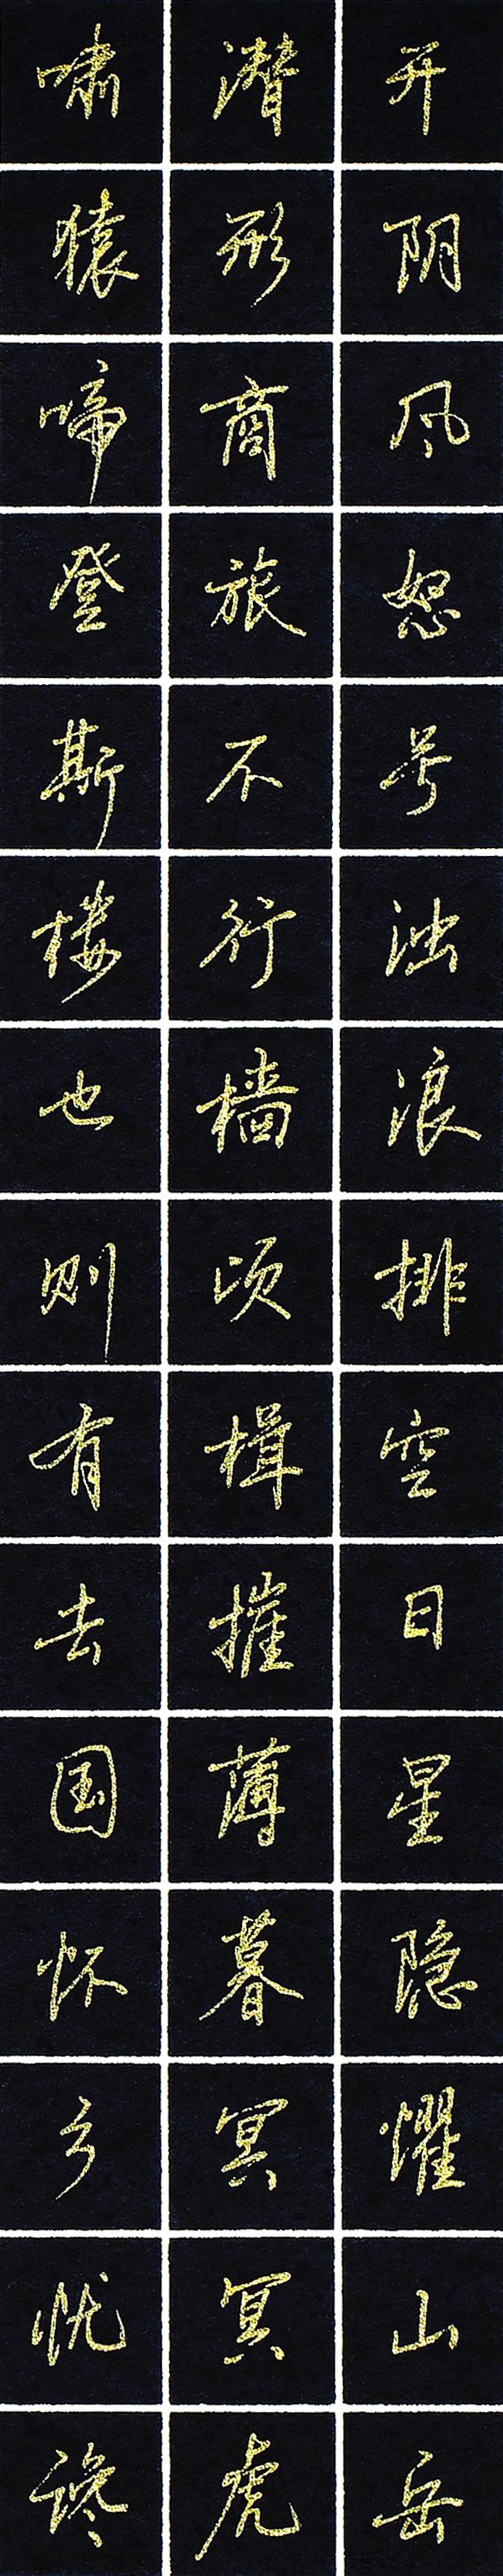 开阴风怒号浊浪排空日星隐懼山岳
潜形商旅不行樯倾楫摧薄暮冥冥虎
啸猿啼登斯楼也则有去国怀乡忧谗